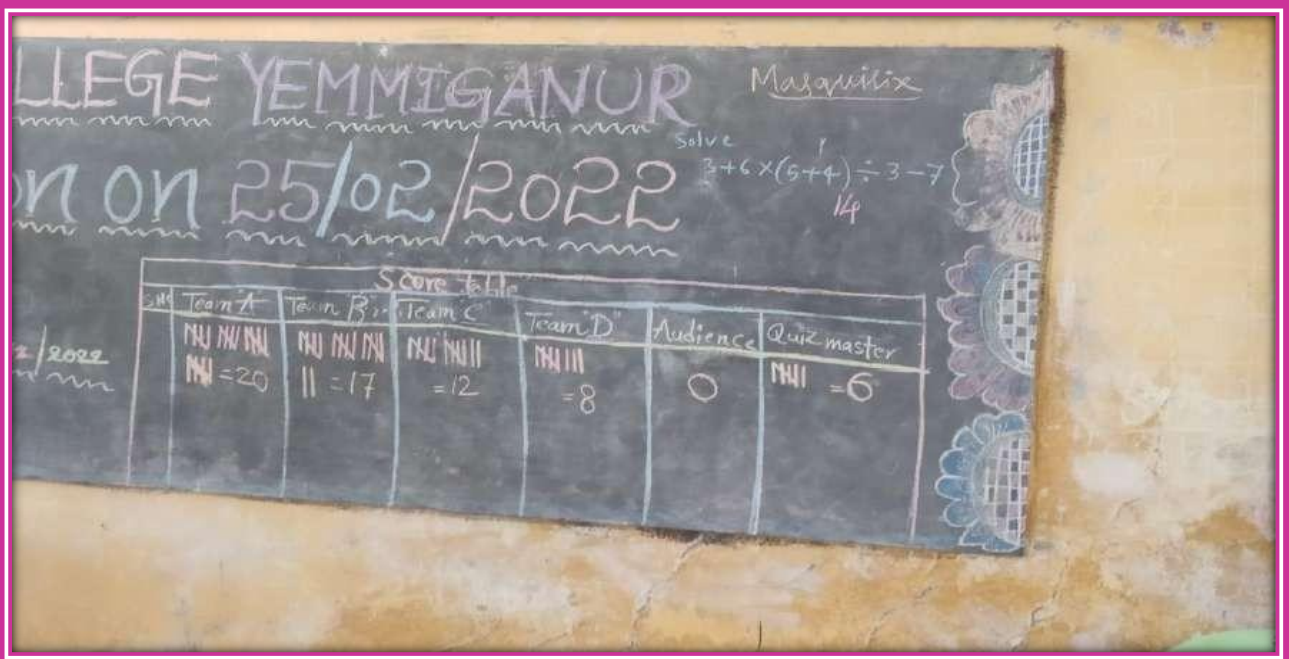 LLEGE YEMMIGANUR
on on 25/02/2022
Masquilix
Solve
3+6×(5+4)÷3-7
14
2/2022
Score table
S.No Team "A" Team B Team "C" Team "D" Audience Quiz master
=20 || =17 =12 =8 0 =6